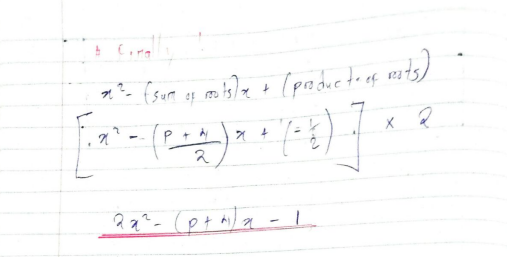 x² - (sum of roots)x + (product of roots)
[x² - (p + 4 / 2) x + (-1/2)] × 2
2x² - (p + 4)x - 1